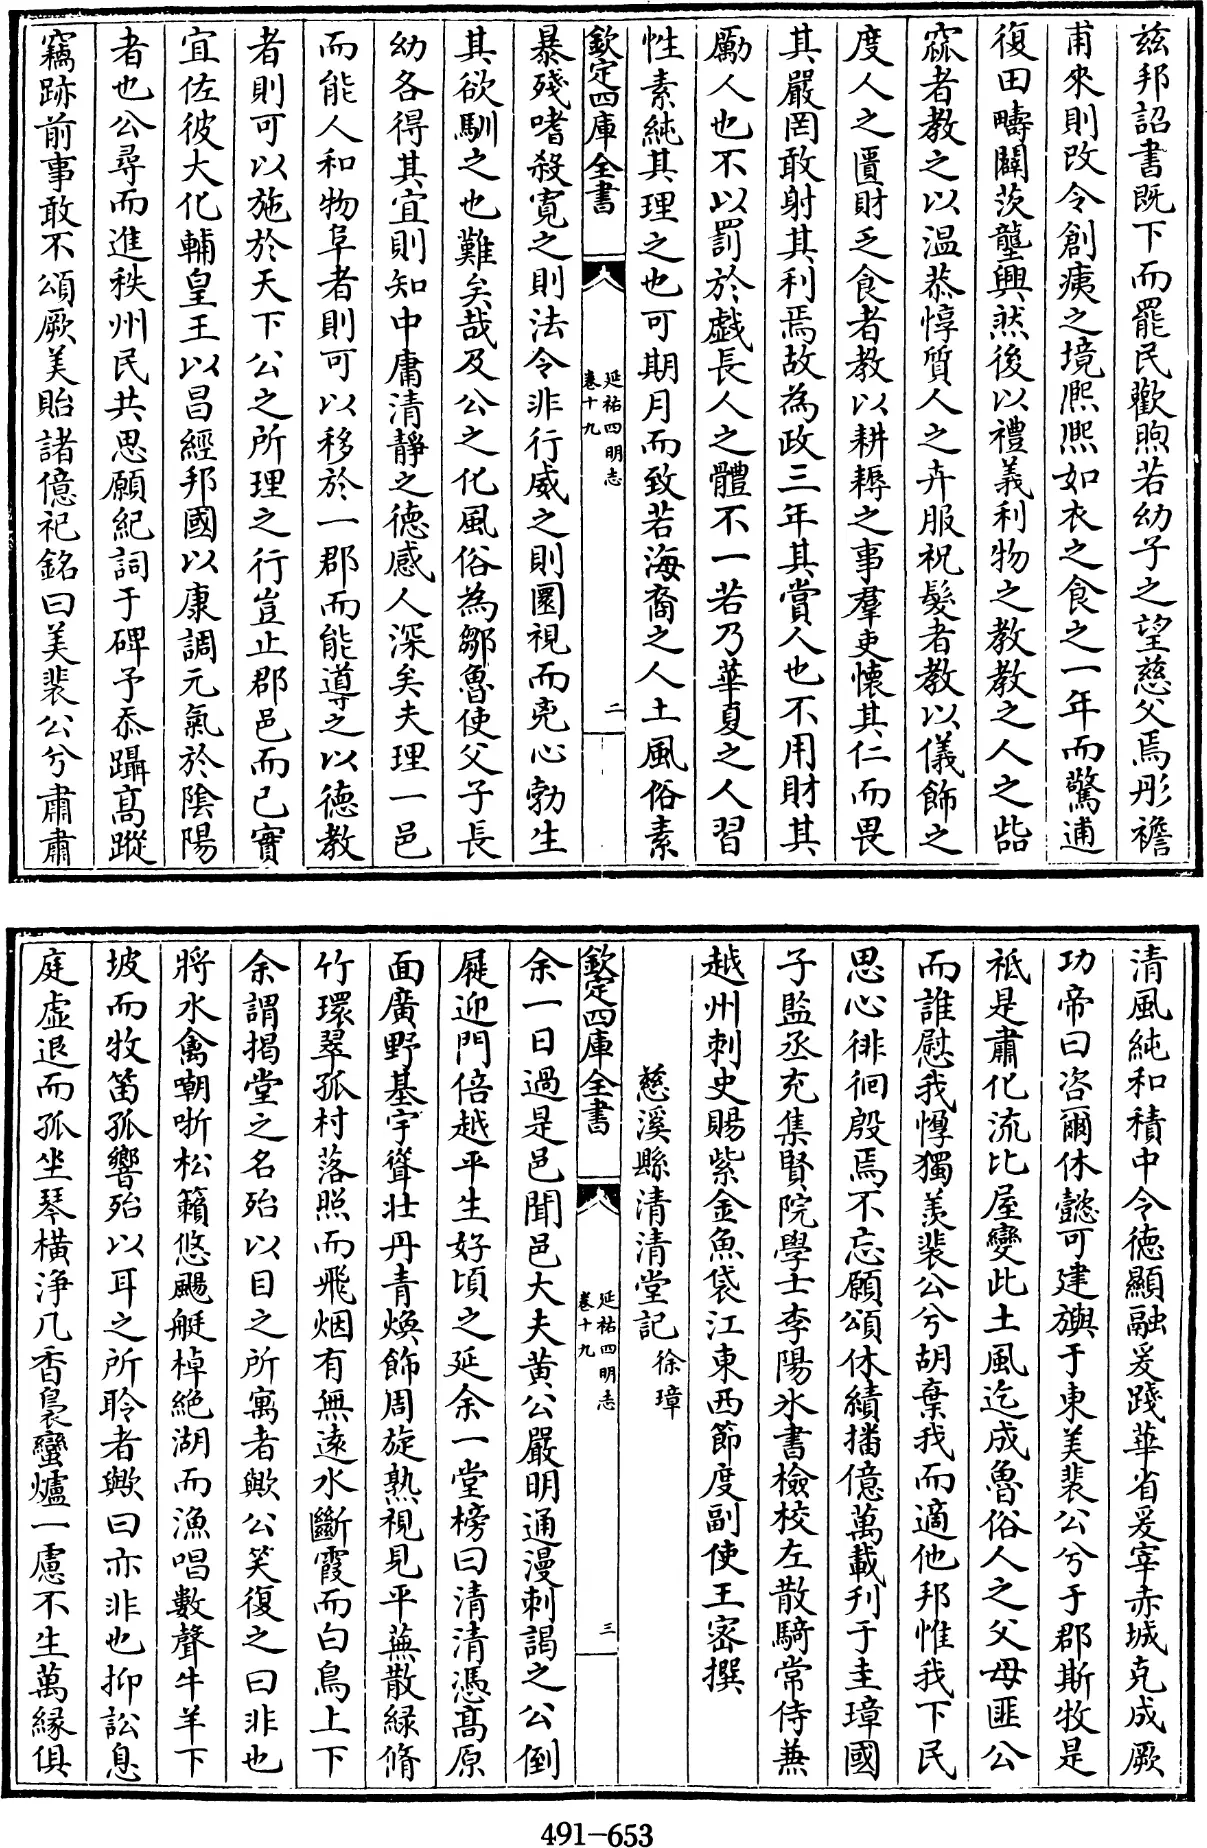 兹邦詔書既下而罷民歡煦若幼子之望慈父焉彤襜
甫來則改令創痍之境熈熈如衣之食之一年而驚逋
復田疇闢茨蘢興然後以禮義利物之教教之人之啙
窳者教之以温恭惇質人之卉服祝髮者教以儀飾之
度人之匱財乏食者教以耕耨之事羣吏懷其仁而畏
其嚴罔敢射其利焉故為政三年其賞人也不用財其
勵人也不以罰於戯長人之體不一若乃華夏之人習
性素純其理之也可期月而致若海裔之人土風俗素
欽定四庫全書
延祐四明志
卷十九
二
暴殘嗜殺寛之則法令非行威之則圜視而兇心勃生
其欲馴之也難矣哉及公之化風俗為鄒魯使父子長
幼各得其宜則知中庸清靜之徳感人深矣夫理一邑
而能人和物阜者則可以移於一郡而能導之以徳教
者則可以施於天下公之所理之行豈止郡邑而已實
宜佐彼大化輔皇王以昌經邦國以康調元氣於陰陽
者也公尋而進秩州民共思願紀詞于碑予忝躡髙蹤
竊跡前事敢不頌厥美貽諸億祀銘曰美裴公兮肅肅
清風純和積中令徳顯融爰踐華省爰宰赤城克成厥
功帝曰咨爾休懿可建旟于東美裴公兮于郡斯牧是
祗是肅化流比屋變此土風迄成魯俗人之父母匪公
而誰慰我惸獨羙裴公兮胡棄我而適他邦惟我下民
思心徘徊殷焉不忘願頌休績播億萬載刋于圭璋國
子監丞充集賢院學士李陽氷書檢校左散騎常侍兼
越州刺史賜紫金魚袋江東西節度副使王密撰
慈溪縣清清堂記 徐璋
欽定四庫全書
延祐四明志
卷十九
三
余一日過是邑聞邑大夫黄公嚴明通漫刺謁之公倒
屣迎門倍越平生好頃之延余一堂榜曰清清憑髙原
面廣野基宇聳壯丹青煥飾周旋熟視見平蕪散緑脩
竹環翠孤村落照而飛烟有無逺水斷霞而白鳥上下
余謂揭堂之名殆以目之所寓者歟公笑復之曰非也
將水禽嘲哳松籟悠颺艇棹絶湖而漁唱數聲牛羊下
坡而牧笛孤響殆以耳之所聆者歟曰亦非也抑訟息
庭虚退而孤坐琴横浄几香裊蠻爐一慮不生萬縁俱
491-653